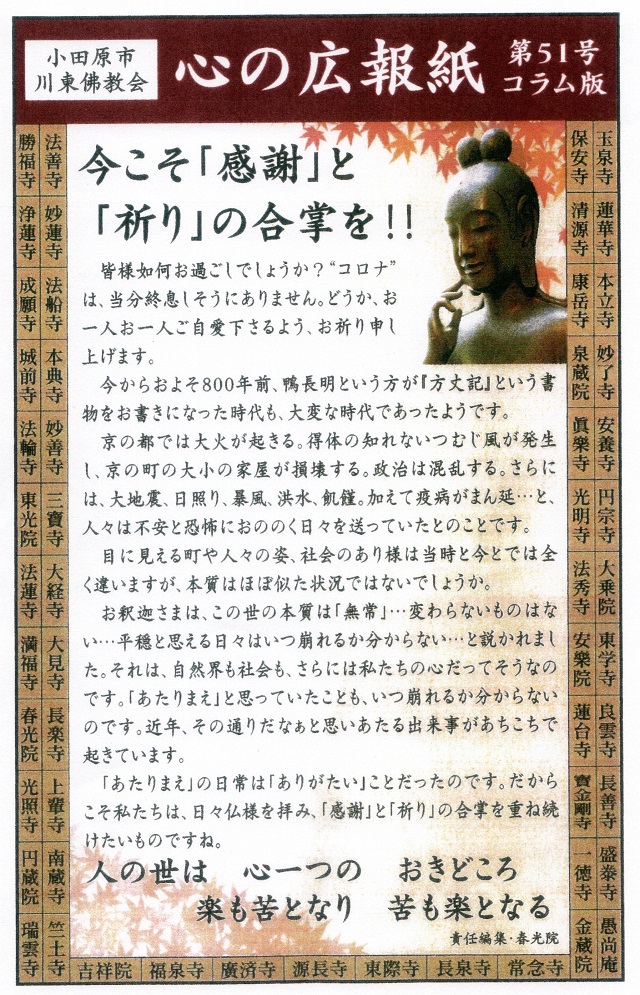 小田原市
川東佛教会
心の広報紙
第51号
コラム版
今こそ「感謝」と
「祈り」の合掌を!!
皆様如何お過ごしでしょうか？“コロナ”
は、当分終息しそうにありません。どうか、お
一人お一人ご自愛下さるよう、お祈り申し
上げます。
今からおよそ800年前、鴨長明という方が『方丈記』という書
物をお書きになった時代も、大変な時代であったようです。
京の都では大火が起きる。得体の知れないつむじ風が発生
し、京の町の大小の家屋が損壊する。政治は混乱する。さらに
は、大地震、日照り、暴風、洪水、飢饉。加えて疫病がまん延…と、
人々は不安と恐怖におののく日々を送っていたとのことです。
目に見える町や人々の姿、社会のあり様は当時と今とでは全
く違いますが、本質はほぼ似た状況ではないでしょうか。
お釈迦さまは、この世の本質は「無常」…変わらないものはな
い…平穏と思える日々はいつ崩れるか分からない…と説かれまし
た。それは、自然界も社会も、さらには私たちの心だってそうなの
です。「あたりまえ」と思っていたことも、いつ崩れるか分からない
のです。近年、その通りだなぁと思いあたる出来事があちこちで
起きています。
「あたりまえ」の日常は「ありがたい」ことだったのです。だから
こそ私たちは、日々仏様を拝み、「感謝」と「祈り」の合掌を重ね続
けたいものですね。
人の世は　心一つの　おきどころ
楽も苦となり　苦も楽となる
責任編集・春光院
玉泉寺
蓮華寺
本立寺
妙了寺
安養寺
円宗寺
大乗院
東学寺
良雲寺
長善寺
盛泰寺
愚尚庵
保安寺
清源寺
康岳寺
泉蔵院
眞樂寺
光明寺
法秀寺
安樂院
蓮台寺
寶金剛寺
一徳寺
金蔵院
法善寺
妙蓮寺
法船寺
本典寺
妙善寺
三寶寺
大経寺
大見寺
長楽寺
上輩寺
南蔵寺
竺土寺
勝福寺
浄蓮寺
成願寺
城前寺
法輪寺
東光院
法蓮寺
満福寺
春光院
光照寺
円蔵院
瑞雲寺
吉祥院
福泉寺
廣済寺
源長寺
東際寺
長泉寺
常念寺